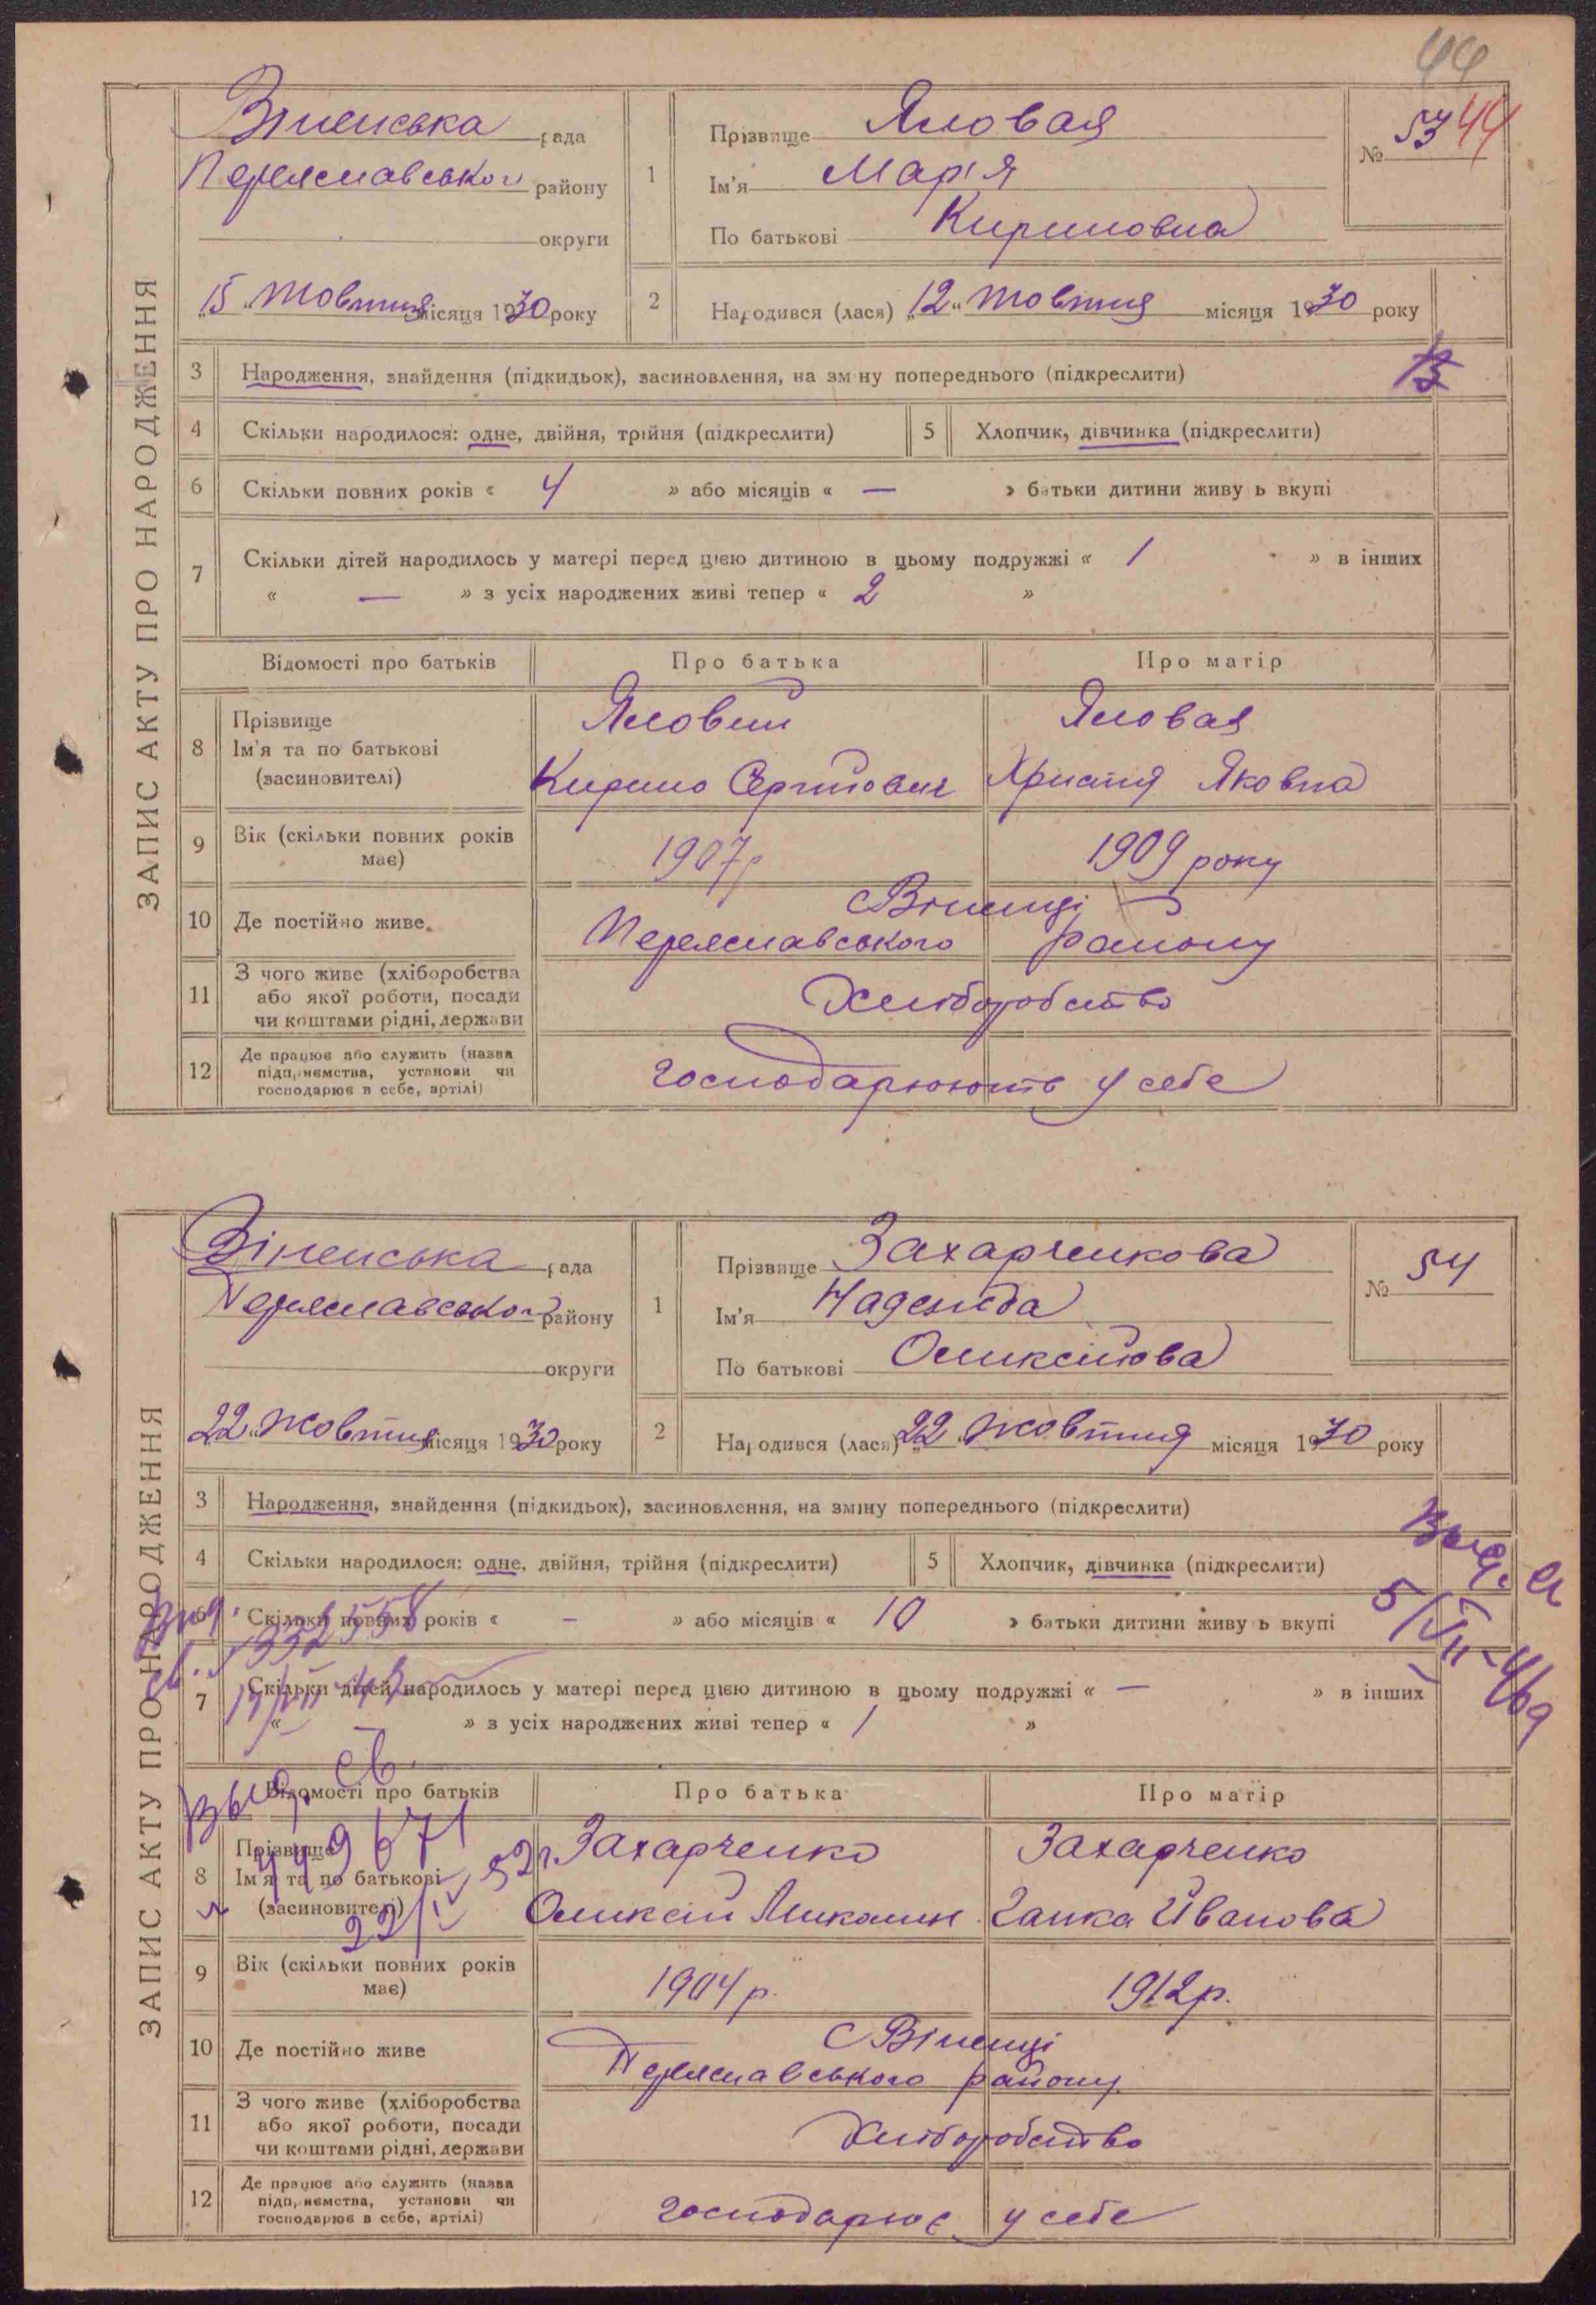 44
ЗАПИС АКТУ ПРО НАРОДЖЕННЯ
Віненська рада
Переяславського району
округи
„15„ жовтня місяця 1930 року
1 Прізвище Яловая
Ім'я Марія
По батькові Кириловна
№ 53 44
2 Народився (лася) „12„ жовтня місяця 1930 року
3 Народження, знайдення (підкидьок), засиновлення, на зміну попереднього (підкреслити)
4 Скільки народилося: одне, двійня, трійня (підкреслити) 5 Хлопчик, дівчинка (підкреслити)
6 Скільки повних років « 4 » або місяців « — » батьки дитини живуть вкупі
7 Скільки дітей народилось у матері перед цією дитиною в цьому подружжі « 1 » в інших
« — » з усіх народжених живі тепер « 2 »
Відомості про батьків Про батька Про матір
8 Прізвище Яловий Яловая
Ім'я та по батькові Кирило Сергійович Христя Яковна
(засиновителі)
9 Вік (скільки повних років має) 1907р 1909 року
10 Де постійно живе. с Віненці
Переяславського району
11 З чого живе (хліборобства
або якої роботи, посади Хліборобство
чи коштами рідні, держави
12 Де працює або служить (назва
підприємства, установи чи господарюють у себе
господарює в себе, артілі)
ЗАПИС АКТУ ПРО НАРОДЖЕННЯ
Віненська рада
Переяславського району
округи
22„ жовтня місяця 1930 року
1 Прізвище Захарченкова
Ім'я Надежда
По батькові Оликсіюва
№ 54
2 Народився (лася) „22„ жовтня місяця 1930 року
3 Народження, знайдення (підкидьок), засиновлення, на зміну попереднього (підкреслити)
4 Скільки народилося: одне, двійня, трійня (підкреслити) 5 Хлопчик, дівчинка (підкреслити)
6 Скільки повних років « – » або місяців « 10 » батьки дитини живуть вкупі
7 Скільки дітей народилось у матері перед цією дитиною в цьому подружжі « — » в інших
« » з усіх народжених живі тепер « 1 »
Выд.
5/VII-
Выд. св.
449671
22/IV 52г.
Відомості про батьків Про батька Про матір
8 Прізвище Захарченко Захарченко
Ім'я та по батькові Оликсій Миколин Ганка Иванова
(засиновителі)
9 Вік (скільки повних років має) 1904 р. 1912 р.
10 Де постійно живе с Віненці
Переяславського району
11 З чого живе (хліборобства
або якої роботи, посади Хліборобство
чи коштами рідні, держави
12 Де працює або служить (назва
підприємства, установи чи господарює у себе
господарює в себе, артілі)